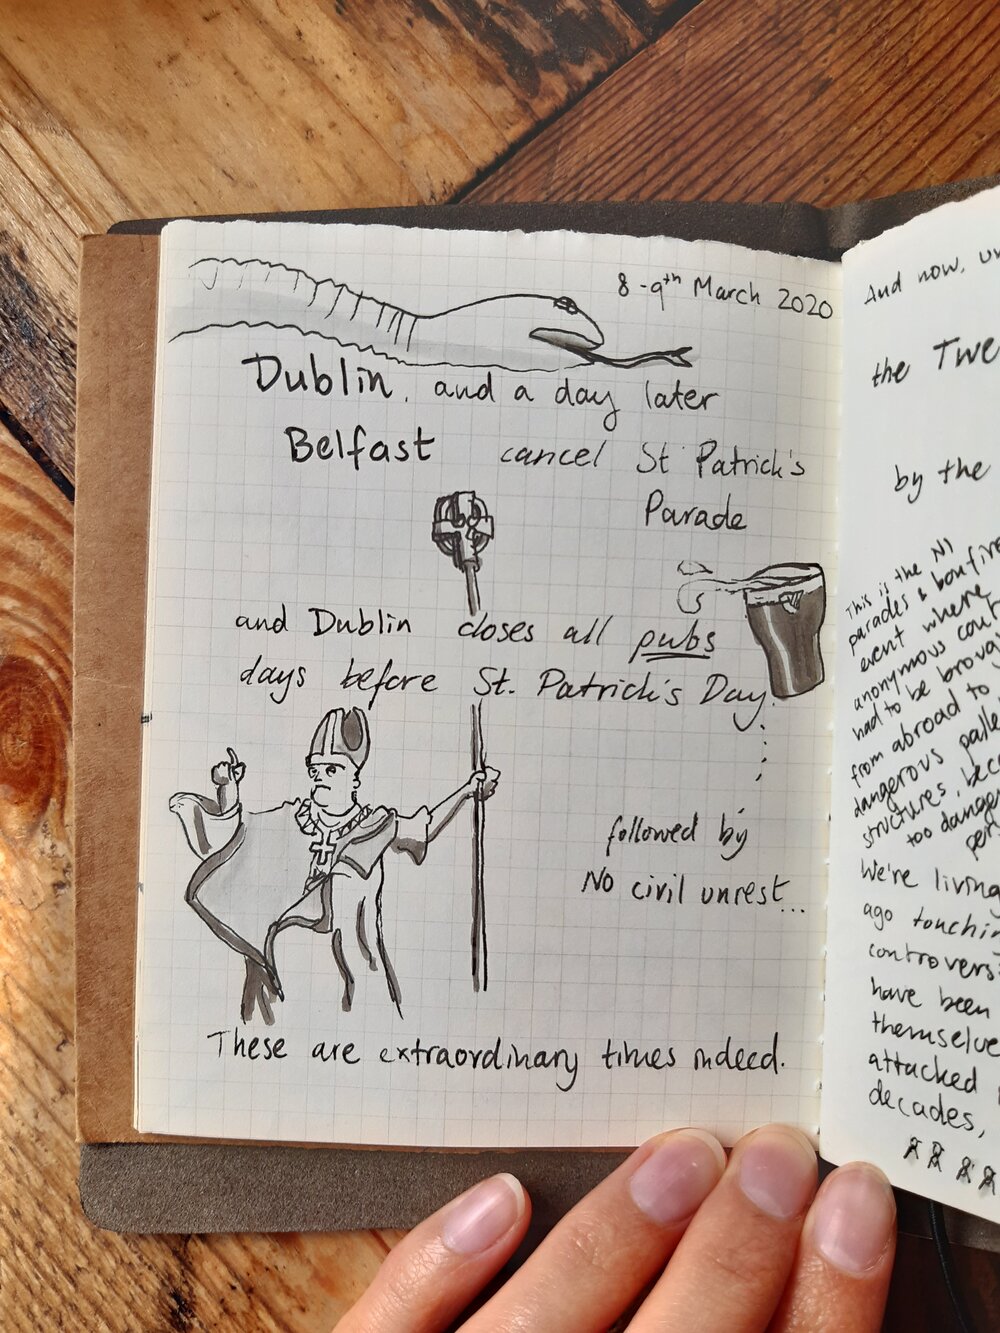 8-9th March 2020
Dublin, and a day later
Belfast cancel St Patrick's
Parade
and Dublin closes all pubs
days before St. Patrick's Day
followed by
No civil unrest...
These are extraordinary times indeed.
And now,
the
by the
This is the NI
parades &
event where
anonymous
had to be
from abroad to
dangerous
structures,
too
We're living
ago
have been
attacked
decades,